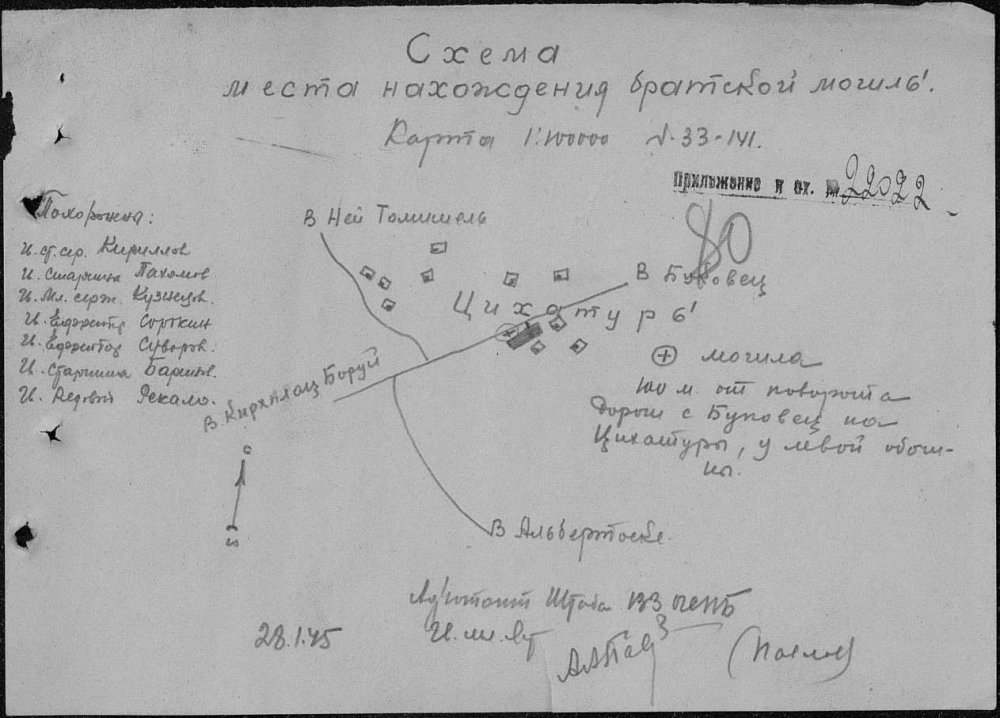 Схема
места нахождения братской могилы.
Карта 1:100000 N-33-141.
Приложение к вх. № 22022
80
Похоронена:
Г. ст. сер. Кириллов
Г. старшина Пахомов
Г. мл. серж. Кузнецов.
Г. Ефрейтор Сорокин
Г. Ефрейтор Суворов.
Г. старшина
Г. Рядовой
В Ней Томишель
В Буковец
Цихатуры
В Кирхплац Боруй
В Альбертоске.
могила
100 м. от поворота
дороги с Буковец на
Цихатуры, у левой обочи-
ны.
С
Ю
Адъютант Штаба 133
28.1.45
Г. мл. л-т